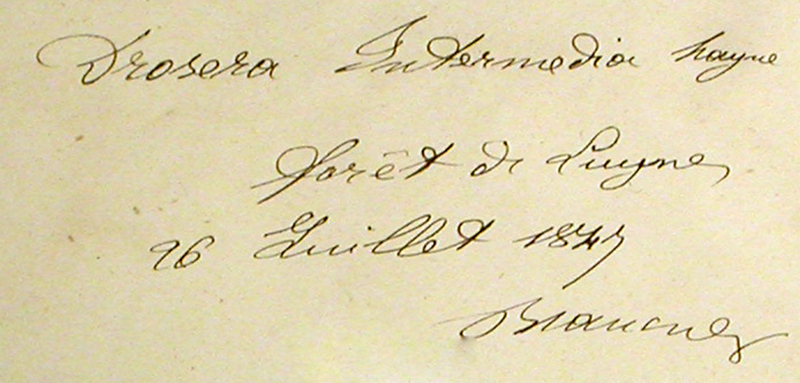 Drosera Intermedia hayne
forêt de Luynes
26 Juillet 1847